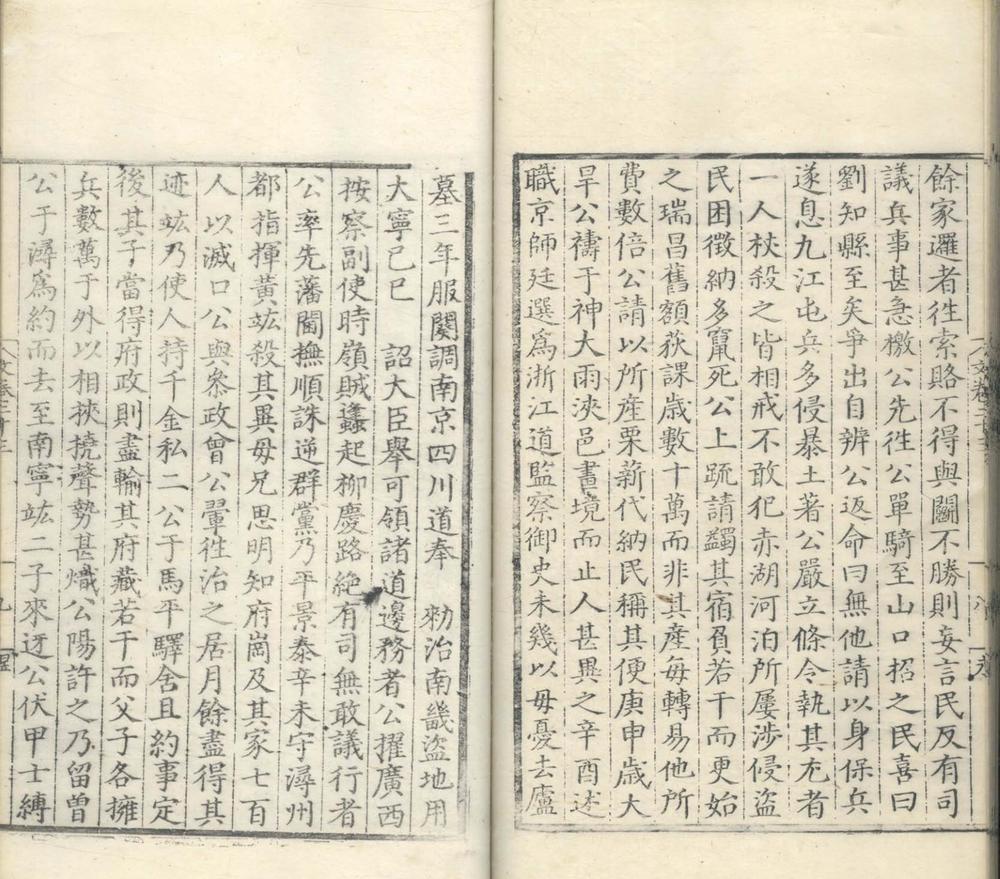 餘家邏者徃索賂不得與鬬不勝則妄言民反有司
議兵事甚急檄公先徃公單騎至山口招之民喜曰
劉知縣至矣爭出自辨公返命曰無他請以身保兵
遂息九江屯兵多侵暴土著公嚴立條令執其尤者
一人杖殺之皆相戒不敢犯赤湖河泊所屢涉侵盜
民困徵納多竄死公上疏請蠲其宿負若干而更始
之瑞昌舊額荻課歲數十萬而非其產每轉易他所
費數倍公請以所産栗薪代納民稱其便庚申歲大
旱公禱于神大雨浹邑畫境而止人甚異之辛酉述
職京師廷選爲浙江道監察御史未幾以母憂去廬
墓三年服闋調南京四川道奉 勑治南畿盜地用
大寧己巳 詔大臣舉可領諸道邊務者公擢廣西
按察副使時嶺賊蠭起柳慶路絶有司無敢議行者
公率先藩閫撫順誅逆群黨乃平景泰辛未守潯州
都指揮黃竑殺其異母兄思明知府崗及其家七百
人以滅口公與叅政曾公翬徃治之居月餘盡得其
迹竑乃使人持千金私二公于馬平驛舍且約事定
後其子當得府政則盡輸其府藏若干而父子各擁
兵數萬于外以相挾撓聲勢甚熾公陽許之乃留曾
公于潯爲約而去至南寧竑二子來迓公伏甲士縛